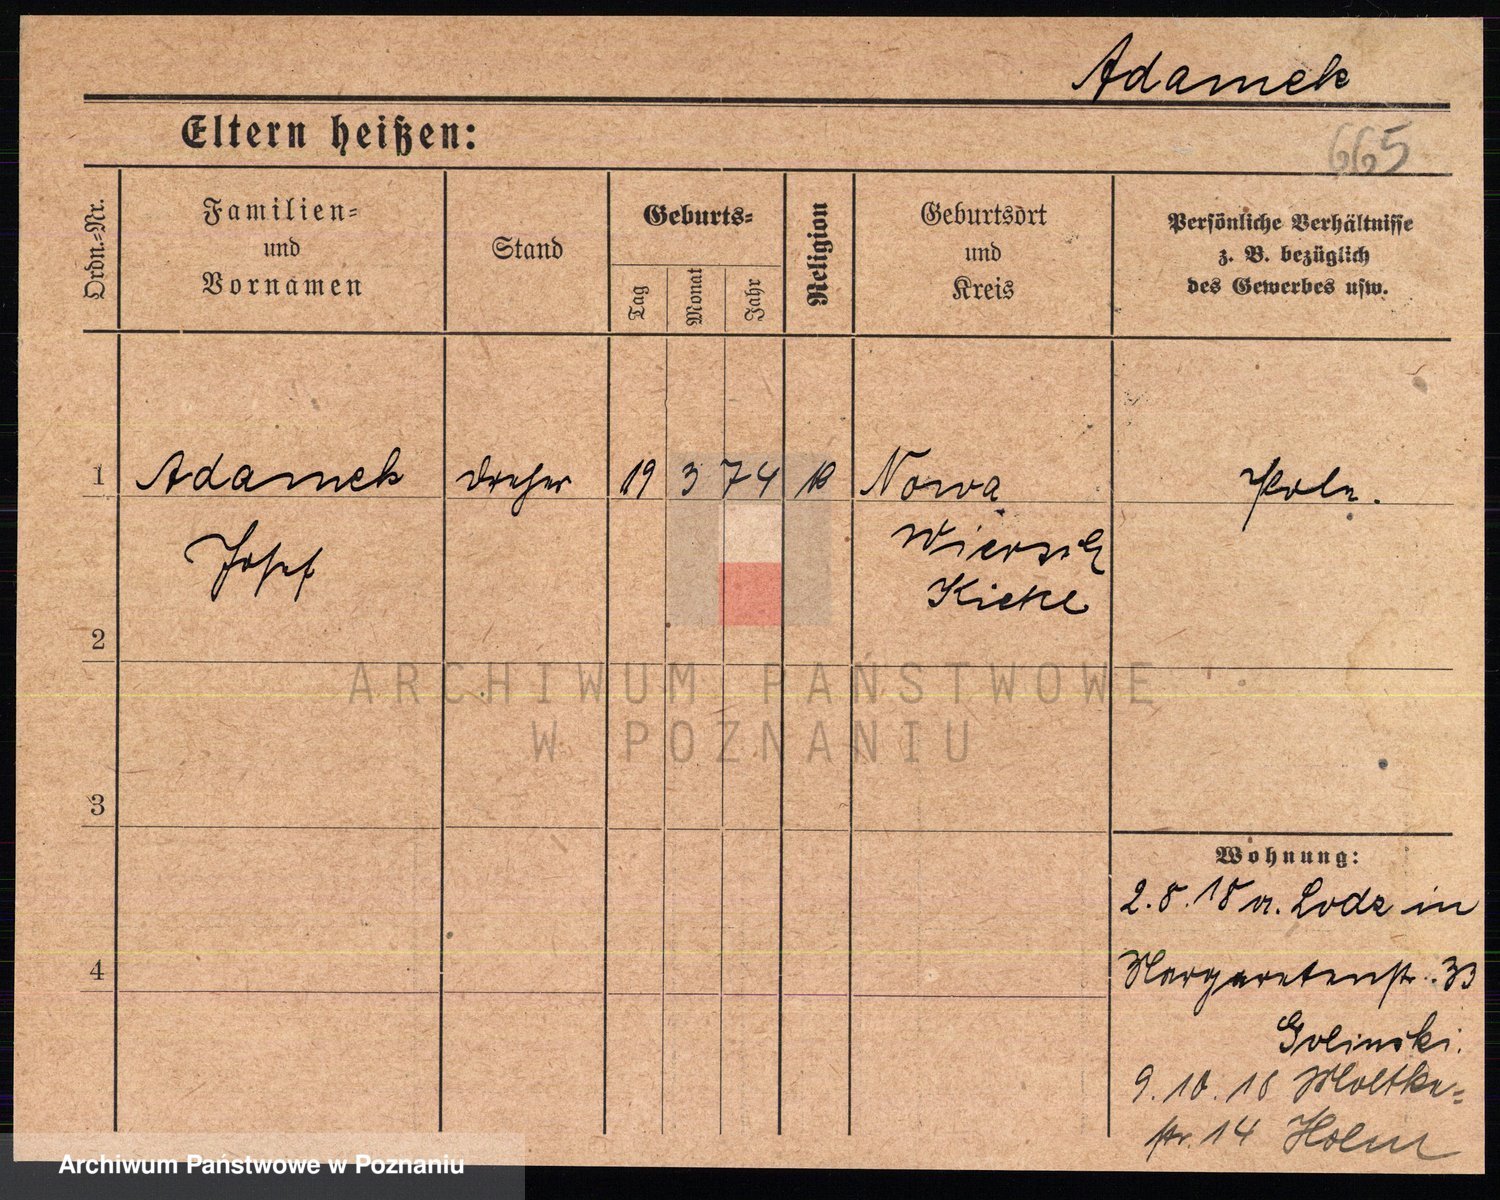 Adamek
Eltern heißen:
665
Ordn.-Nr.
Familien-
und
Vornamen
Stand
Geburts-
Tag
Monat
Jahr
Religion
Geburtsort
und
Kreis
Persönliche Verhältnisse
z. B. bezüglich
des Gewerbes usw.
1 Adamek Dreher 19 3 74 Nowa Pole.
Josef
2
3
4
Wohnung:
2.8.18 v. Lodz in
Margaretenstr. 33
Golinski.
9.10.18 Moltke-
str. 14
ARCHIWUM PAŃSTWOWE
W POZNANIU
Archiwum Państwowe w Poznaniu